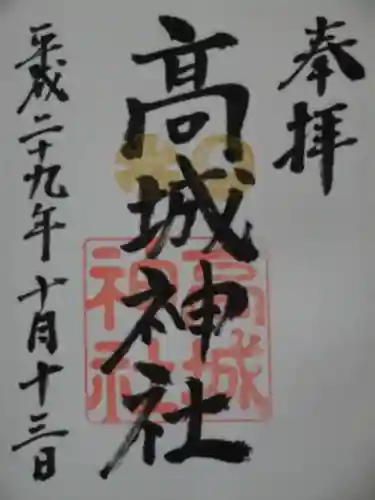 奉拝
高城神社
高城
神社
平成二十九年十月十三日